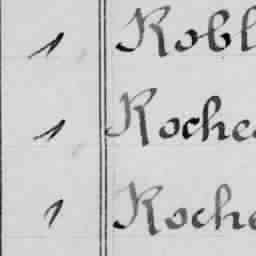 1 Robl
1 Roche
1 Roche